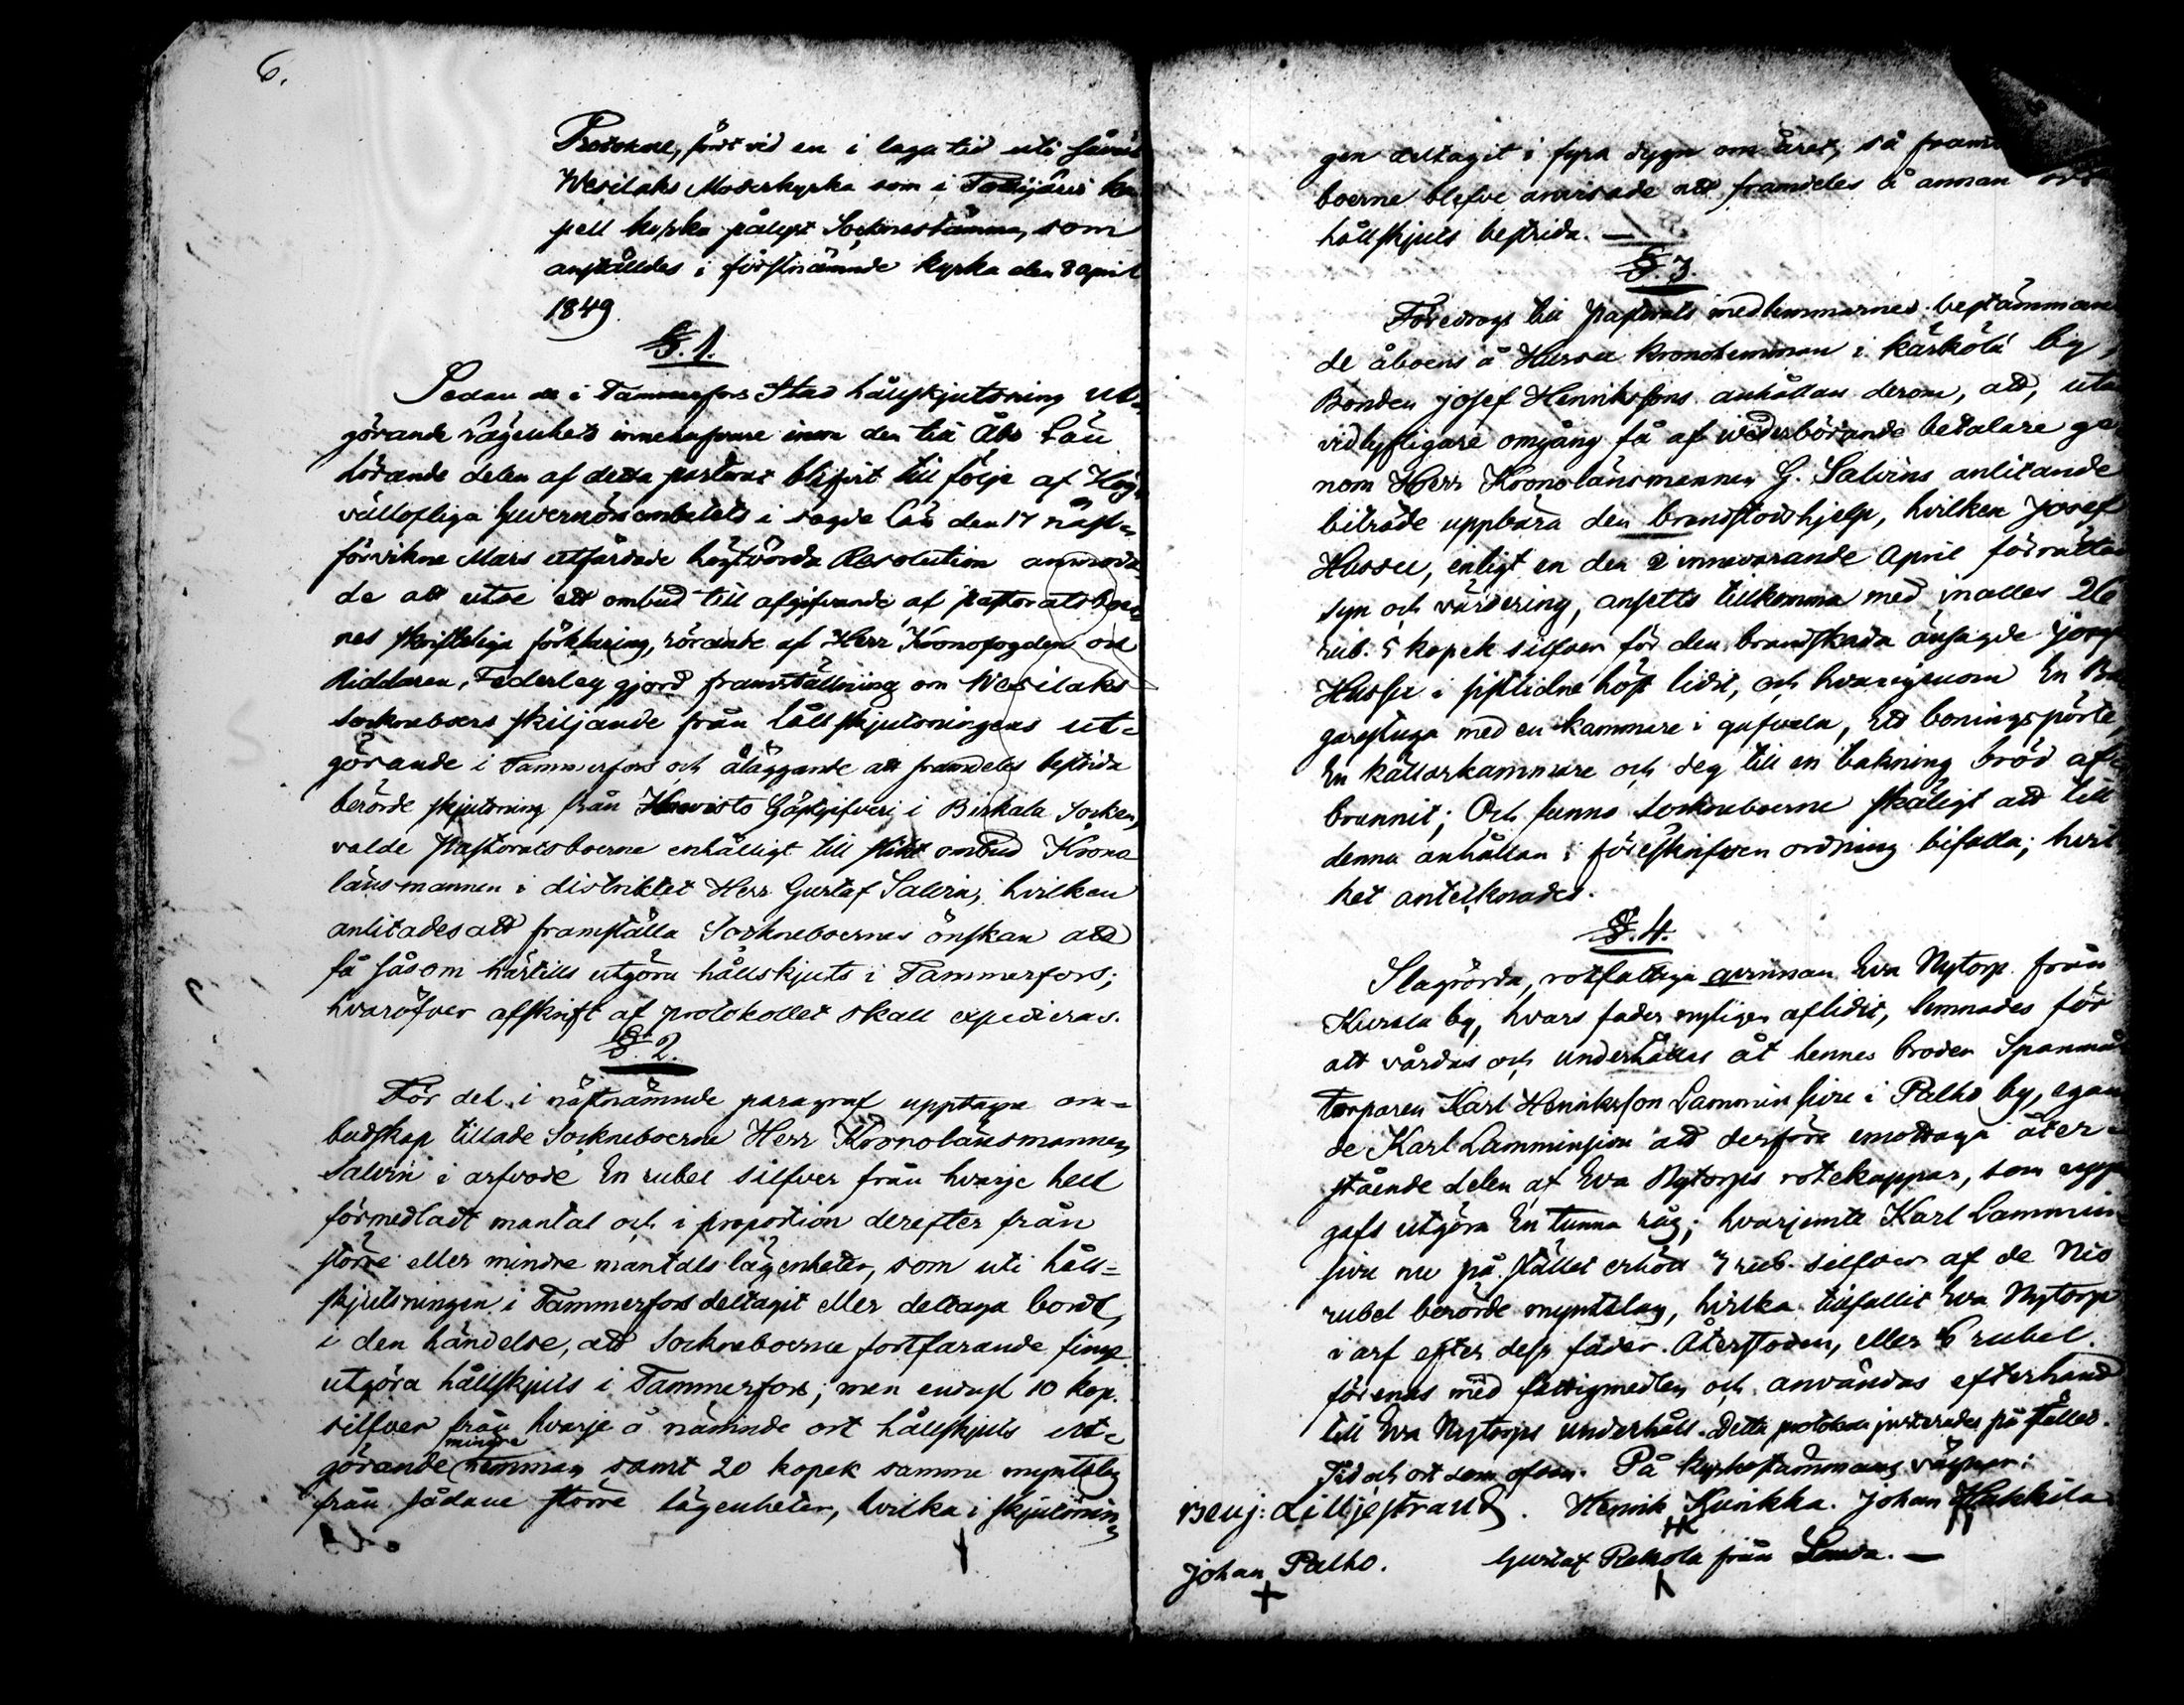 6.
Protokoll, fördt vid en i laga tid uti såväl
Wesilaks Moderkyrka som i Tottijärvi ka-
pell kyrka pålyst Sockenestämma, som
anställdes i förstnämnde kyrka den 8 april
1849.
§. 1.
Sedan de i Tammerfors Stad hållskjutsning ut-
görande lägenhets innehafvare inom den till Åbo Län
hörande delen af detta pastorat blifvit till följe af Hög-
vällofliga Guvernörsembetets i sagde län den 17 näst-
förvikne Mars utfärdade högtvörda Resolution anmoda-
de att utse ett ombud till afgifvande af pastoratsboer-
nes skriftliga förklaring, rörande af Herr Kronofogden och
Riddaren, Federley gjord framställning om Wesilaks
sockneboers skiljande från hållskjutsningens ut-
görande i Tammerfors och åläggande att framdeles bestrida
berörde skjutsning från Gästgifveri i Birkala Socken,
valde Pastoratsboerne enhälligt till slikt ombud Krono
länsmannen i distriktet Herr Gustaf Salvin, hvilken
anlitades att framställa Sockneboernes önskan att
få såsom härtills utgöra hållskjuts i Tammerfors;
hvaröfver afskrift af protokollet skall expedieras.
§. 2.
För det i nästnämnde paragraf upptagne om-
budskap tillade Sockneboerne Herr Kronolänsmannen
Salvin i arfvode En rubel silfver från hvarje helt
förmedladt mantal och i proportion derefter från
större eller mindre mantals lägenheter, som uti håll-
skjutsningen i Tammerfors deltagit eller deltaga bordt,
i den händelse, att Sockneboerne fortfarande finge
utgöra hållskjuts i Tammerfors; men endast 10 kop.
silfver från hvarje å nämnde ort hållskjuts ut-
görande mindre hemman samt 20 kopek samma myntslag
från sådane större lägenheter, hvilka i skjutsnin-
gen deltagit i fyra dygn om året, så framt
boerne blefve anvisade att framdeles å annan ort
hållskjuts bestrida. —
§. 3.
Föredrogs till Pastorats medlemmarnes bestämman-
de åboens å Hussa Kronohemman i Kärkölä by,
Bonden Josef Henrikssons anhållan derom, att, utan
vidlyftigare omgång få af wederbörande betalare ge-
nom Herr Kronolänsmannen G. Salvins anlitande
biträde uppbära den brandstodshjelp, hvilken Josef
Hussa, enligt en den 2 innevarande April förrättad
syn och värdering, ansetts tillkomma med inalles 26
rub. 5 kopek silfver för den brandskada önsagde Josef
Hussa i sistlidne höst lidit, och hvarigenom En Ba-
garstuga med en kammare i gafveln, Ett boningspörte,
En källarkammare och deg till en bakning bröd af-
brunnit; Och funno Sockneboerne skäligt att till
denna anhållan i föreskrifven ordning bifalla; hvil-
ket antecknades.
§. 4.
Slagrörda, rotfattiga qvinnan Eva Nytorp från
Kurala by, hvars fader nyligen aflidit, lemnades för
att vårdas och underhållas åt hennes broder Spanmåls
torparen Karl Henriksson Lamminsivu i Palho by, egan-
de Karl Lamminsivu att derföre emottaga åter-
stående delen af Eva Nytorps rotekappar, som upp-
gafs utgöra En tunna råg; hvarjemte Karl Lammin-
sivu nu på stället erhöll 3 rub. silfver af de Nio
rubel berörde myntslag, hvilka tillfallit Eva Nytorp
i arf efter dess fader. Återstoden, eller 6 rubel
förenas med fattigmedlen och användas efterhand
till Eva Nytorps underhåll. Detta protokoll justerades på stället.
Tid och ort som ofvan. På kyrkostämmans vägnar:
Benj: Lilljestrand. Henrik Kurikka. Johan Hakkila
Johan Palho. Gustaf Rekola från